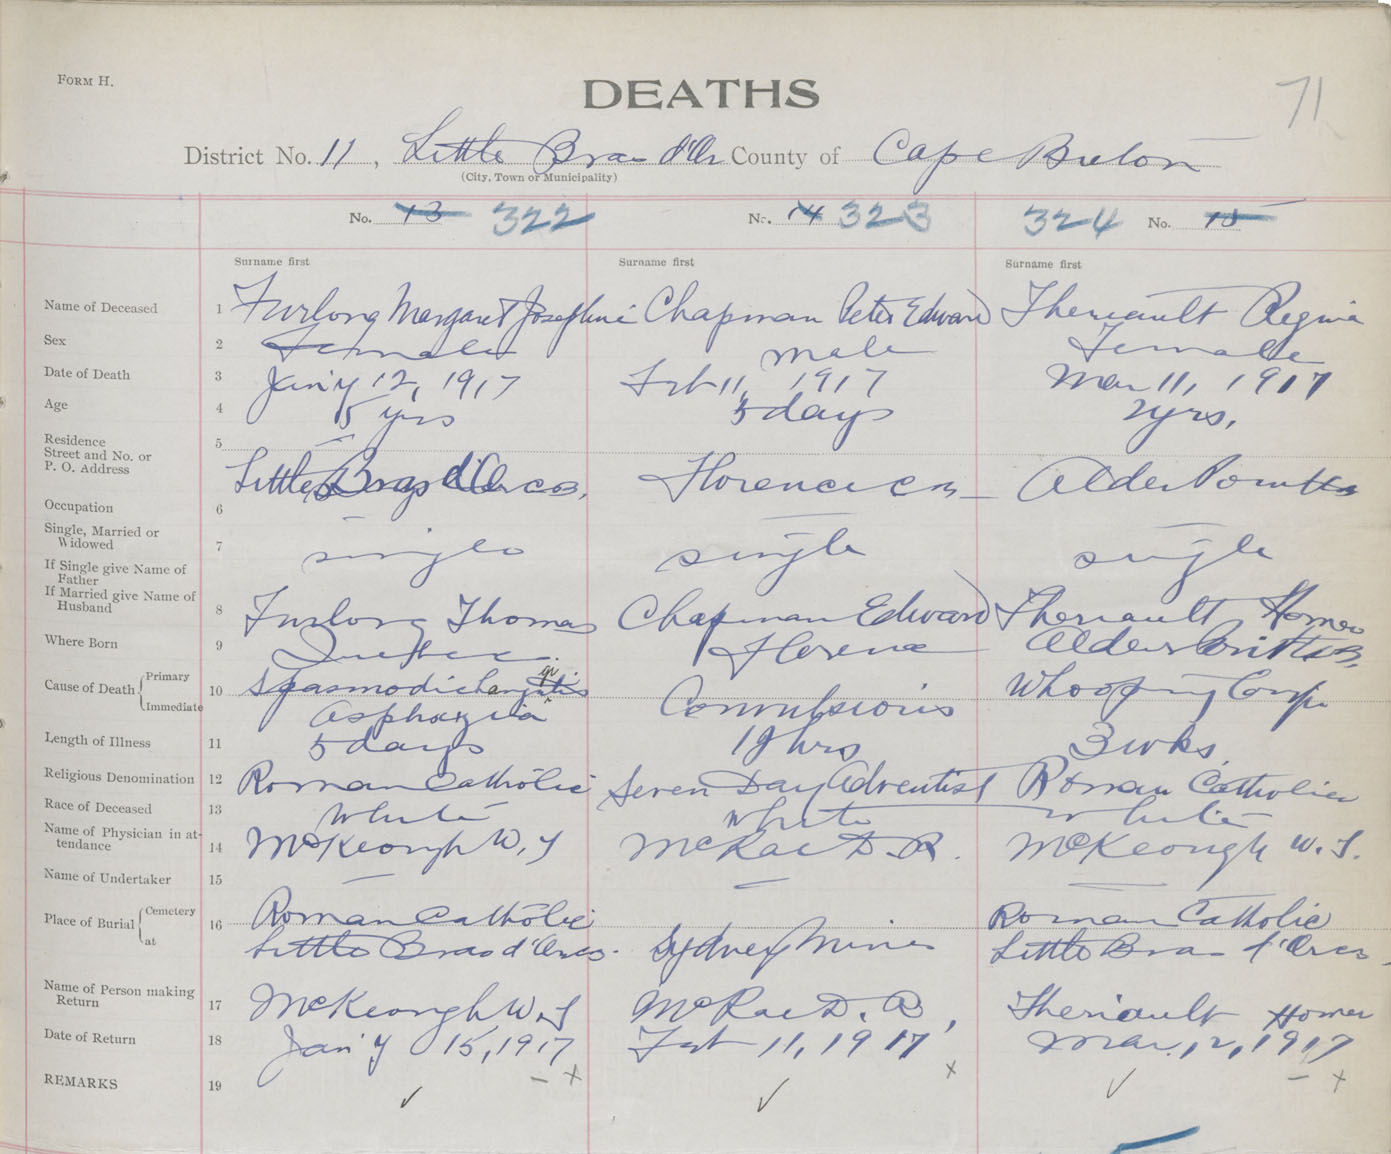 FORM H.
DEATHS
71
District No. 11, Little Bras d'Or County of Cape Breton
(City, Town or Municipality)
No. 13 322
No. 14 323
324 No. 15
Surname first
Surname first
Surname first
Name of Deceased 1 Furlong Margaret Josephine Chapman Peter Edward Theriault Regina
Sex 2 Female male Female
Date of Death 3 Jan'y 12, 1917 Feb 11, 1917 Mar 11, 1917
Age 4 5 yrs 5 days 2yrs.
Residence
Street and No. or
P. O. Address 5 Little Bras d'Or C.B. Florence C B Alder Point CB
Occupation 6 — — —
Single, Married or
Widowed 7 single single single
If Single give Name of
Father
If Married give Name of
Husband 8 Furlong Thomas Chapman Edward Theriault Homer
Where Born 9 Quebec. Florence Alder Point CB.
Cause of Death Primary 10 Spasmodic Convulsions Whooping Cough
Immediate Asphaxzia
Length of Illness 11 5 days 19 hrs 3 wks.
Religious Denomination 12 Roman Catholic Seven Day Adventist Roman Catholic
Race of Deceased 13 White White White
Name of Physician in at-
tendance 14 McKeough W. J McRae D. R. McKeough W. J.
Name of Undertaker 15 — — —
Place of Burial Cemetery 16 Roman Catholic Roman Catholic
at Little Bras d'Or CB. Sydney Mines Little Bras d'Or CB.
Name of Person making
Return 17 McKeough W. J McRae D. R, Theriault Homer
Date of Return 18 Jan'y 15, 1917 Feb 11, 1917 Mar. 12, 1917
REMARKS 19